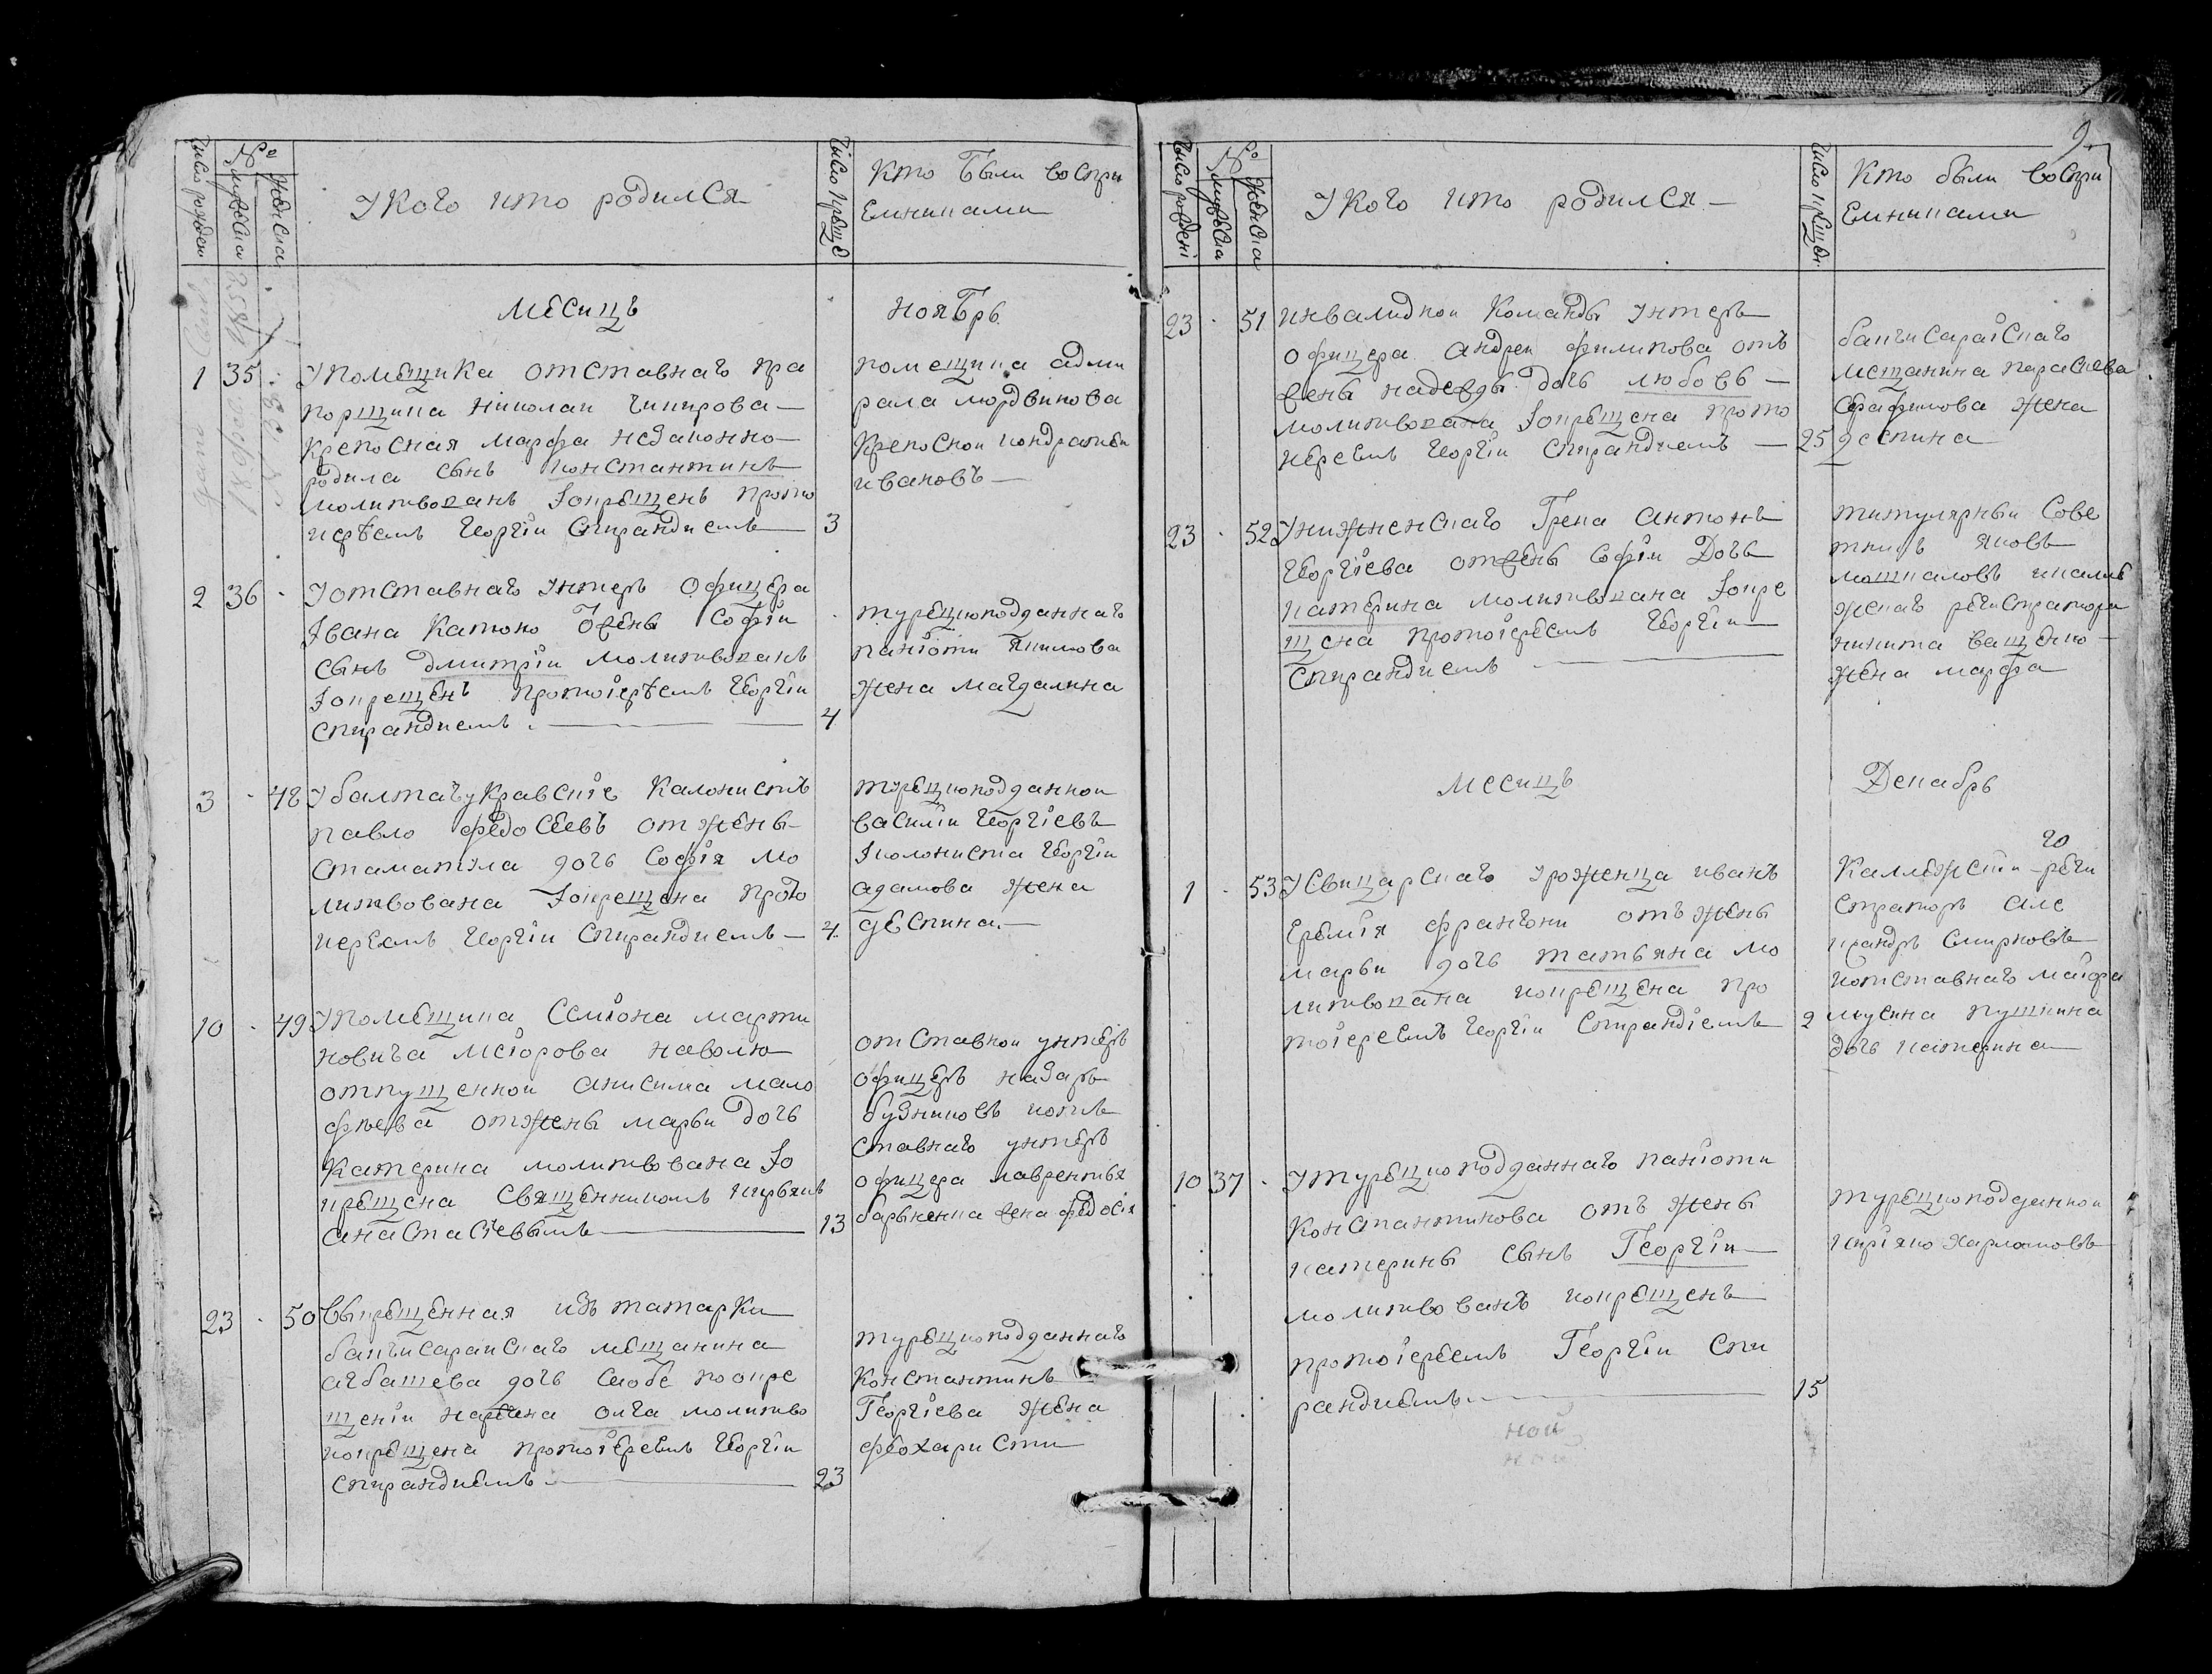 Число рожден
№
Мужеска
Женска
У кого кто родился
Число крещ
Кто были воспри
емниками
Месицъ
Ноябрь
1 35
У помещика отставнаго пра
порщика Николаи
крепосная марфа незаконно
родила сынъ константинъ
молитвованъ Iокрещенъ прото
иереемъ Георгiи Спирандиемъ 3
помещика адми
рала мордвинова
крепоснои кондратеи
ивановъ
2 36
У отставнаго Унтеръ Офицера
Iвана Катоно Софiи
сынъ дмитрiи молитвованъ
Iокрещенъ протоiереемъ Георгiи
Спирандиемъ 4
турецкоподданнаго
панiоти Якимова
жена магдалина
3 48
У балтачукравскiе Калонистъ
павло федосеевъ от жены
Стаматула дочь Софiя мо
литвована Iокрещена прото
иереемъ Георгiи Спирандиемъ 4
турецкоподданнои
василiи Георгiевъ
Iколониста Георгiи
адамова жена
деспина
10 49
У помещика Семiона марти
новича наволю
отпущеннои анисима мало
фъева отжены марьи дочь
Катерина молитвована Iо
крещена Священникомъ
анастасiевымъ 13
отставнои унтеръ
офицеръ назаръ
бузниковъ иотъ
ставнаго унтеръ
офицера лаврентья
жена федосiя
23 50
Выкрещенная изъ татарки
бакчисараискаго мещанина
дочь покре
щенiи наречена олга молитво
икрещена протоiереемъ Георгiи
Спирандиемъ 23
турецкоподданнаго
Константинъ
Георгiева жена
феохаристи
9.
Число рождені
№
Мужеска
Женска
У кого кто родился
Число крещен
Кто были воспри
емниками
23 51
инвалиднои Команды Унтеръ
Офицера Андреи филипова отъ
жены надежды дочь любовь
молитвована Iокрещена прото
иереемъ Георгiи Спирандиемъ 25
бакчисараiскаго
мещанина параскева
Серафимова жена
деспина
23 52
У ниженскаго Грека Антонъ
Георгiева отжены Софiи Дочь
катерина молитвована Iокре
щена протоiереемъ Георгiи
Спирандиемъ
титулярныи Сове
тникъ яковъ
регистратора
никита
жена марфа
Месицъ
Декабрь
1 53
У Свицарскаго Уроженца иванъ
отъ жены
марьи дочь татьяна мо
литвована икрещена про
тоiереемъ Георгiи Спирандiемъ 2
го
Каллежски реги
страторъ але
ксандръ Смирновъ
иотставнаго маiора
мусина пушкина
дочь катерина
10 37
У турецкоподданнаго панiоти
Константинова отъ жены
катерины сынъ Георгiи
молитвованъ икрещенъ
протоiереемъ Георгiи Спи
рандиемъ 15
турецкоподданнои
кирiяко харламовъ